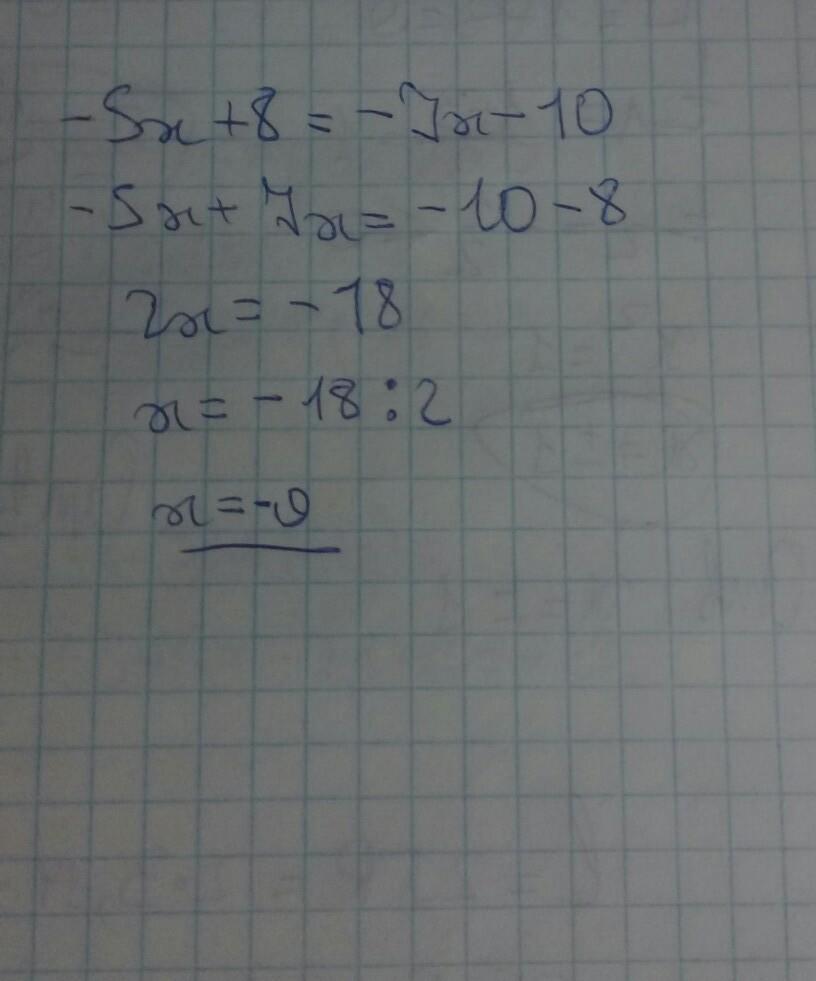 -5x+8=-7x-10
-5x+7x=-10-8
2x=-18
x=-18:2
x=-9